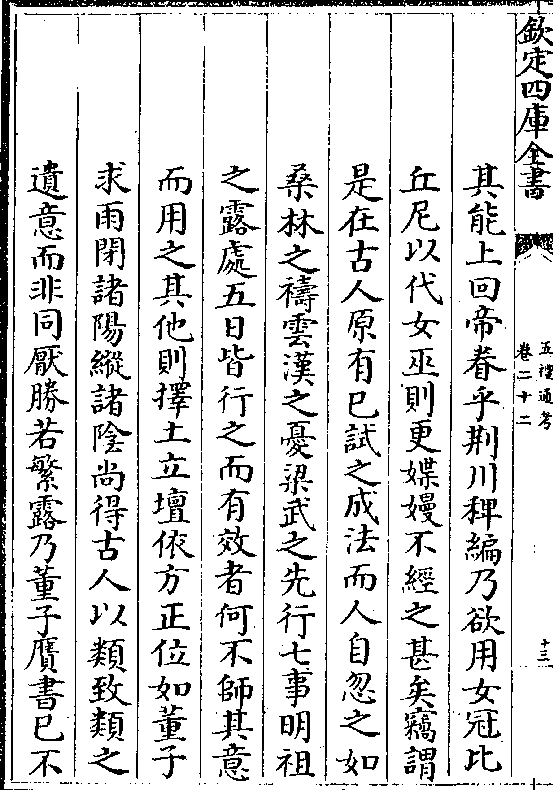 欽定四庫全書
五禮通考
卷二十二
十三
其能上回帝眷乎荆川稗編乃欲用女冠比
丘尼以代女巫則更媟嫚不經之甚矣竊謂
是在古人原有已試之成法而人自忽之如
桑林之禱雲漢之憂梁武之先行七事明祖
之露處五日皆行之而有效者何不師其意
而用之其他則擇土立壇依方正位如董子
求雨閉諸陽縱諸陰尚得古人以類致類之
遺意而非同厭勝若繁露乃董子贋書已不